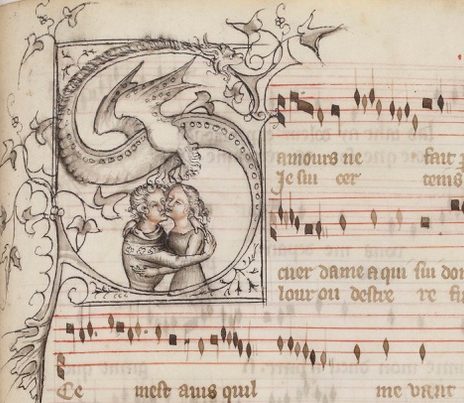 Samours ne fait
Je sui cer teins
cuer dame a qui sui don
lour ou
Ce mest auis quil me